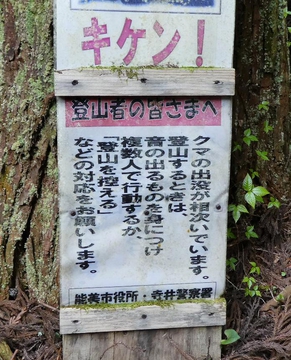 キケン!
登山者の皆さまへ
クマの出没が相次いでいます。
登山するときは、
音の出るものを身につけ
複数人で行動するか、
「登山を控える」
などの対応をお願いします。
能美市役所・寺井警察署